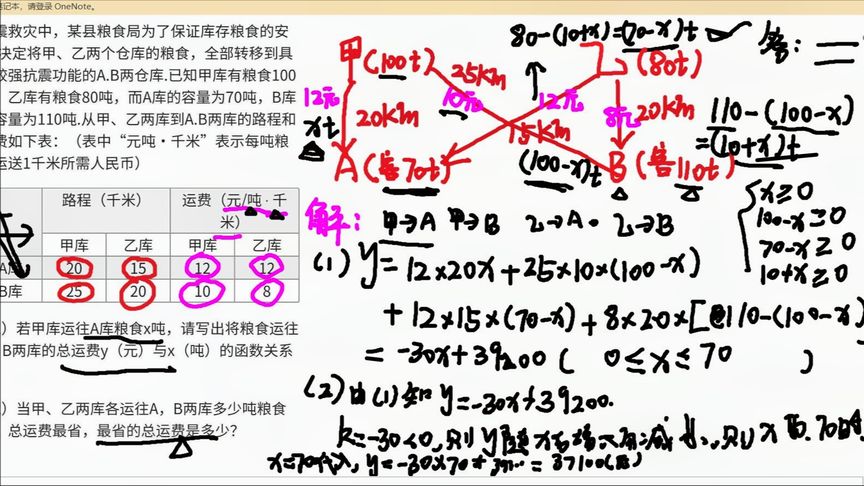 笔记本，请登录 OneNote。
震救灾中，某县粮食局为了保证库存粮食的安
决定将甲、乙两个仓库的粮食，全部转移到具
较强抗震功能的A.B两仓库.已知甲库有粮食100
乙库有粮食80吨，而A库的容量为70吨，B库
容量为110吨.从甲、乙两库到A.B两库的路程和
费如下表：（表中“元吨·千米”表示每吨粮
运送1千米所需人民币）
路程（千米） 运费（元/吨·千米）
甲库 乙库 甲库 乙库
A库 20 15 12 12
B库 25 20 10 8
）若甲库运往A库粮食x吨，请写出将粮食运往
B两库的总运费y（元）与x（吨）的函数关系
）当甲、乙两库各运往A，B两库多少吨粮食
总运费最省，最省的总运费是多少？
80-(10+x)=(70-x)t
答：
甲(100t) (80t)
25km
12元 10元 12元 8元
xt 20km 15km 20km
110-(100-x)
=(10+x)t
A(容70t) (100-x)t B(容110t)
x≥0
100-x≥0
70-x≥0
10+x≥0
解： 甲→A 甲→B 乙→A. 乙→B
(1) y=12×20x+25×10×(100-x)
+12×15×(70-x)+8×20×[110-(100-x)
=-30x+39200( 0≤x≤70 )
(2)由(1)知 y=-30x+39200.
k=-30<0,则y随x 增大而减小,则 x 70时
x=70代入,y=-30×70+ =37100(元)